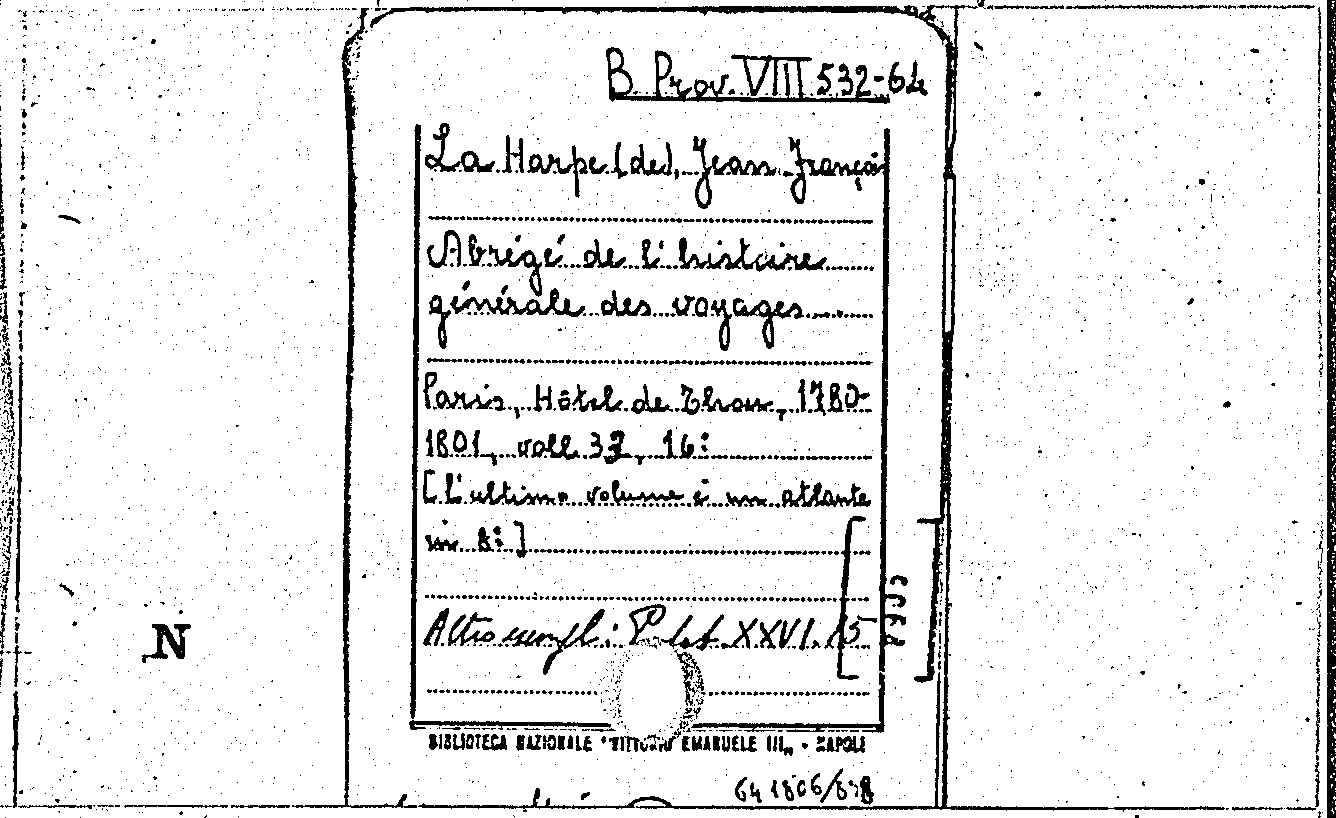 B. Prov. VIII 532-64
La Harpe (de), Jean François
Abrégé de l'histoire
générale des voyages....
Paris, Hôtel de Thou, 1780-
1801, voll. 32, 16:
[l'ultimo volume è un atlante
in 8:]
Altro esempl.: Palat. XXVI. 15
N
BIBLIOTECA NAZIONALE "VITTORIO EMANUELE III" - NAPOLI